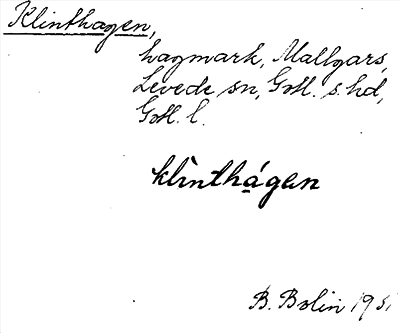 Klinthagen,
hagmark, Mallgårs,
Levede sn, Gotl. s. hd,
Gotl. l.
klìnthá̱gen
B. Bolin